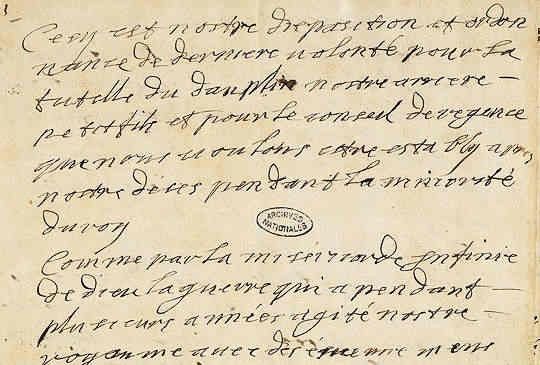 Cecy est nostre disposition et ordon
nance de derniere volonté pour la
tutelle du dauphin nostre arriere
petit fils et pour le conseil de regence
que nous voulons estre estably apres
nostre deces pendant la minorité
du roy
ARCHIVES
NATIONALES
Comme par la misericorde infinie
de dieu la guerre qui a pendant
plusieurs années agité nostre
royaume avec des